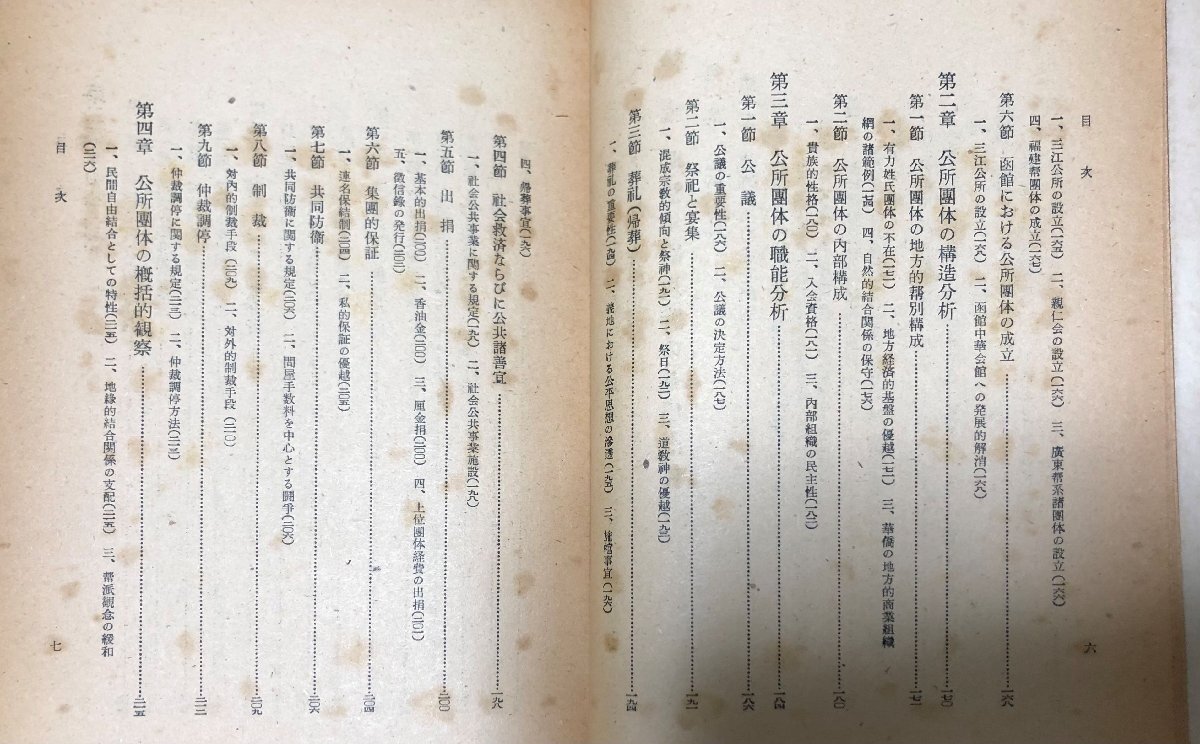 目次
一、三江公所の設立(一六五) 二、親仁会の設立(一六六) 三、廣東帮系諸團体の設立(一六六)
四、福建帮團体の成立(一六七)
第六節 函館における公所團体の成立……一六八
一、三江公所の設立(一六八) 二、函館中華会館への発展的解消(一六八)
第二章 公所團体の構造分析……一七〇
第一節 公所團体の地方的帮別構成……一七一
一、有力姓氏團体の不在(一七一) 二、地方経済的基盤の優越(一七二) 三、華僑の地方的商業組織
網の諸範例(一七四) 四、自然的結合関係の保守(一七六)
第二節 公所團体の内部構成……一八〇
一、貴族的性格(一八〇) 二、入会資格(一八二) 三、内部組織の民主性(一八二)
第三章 公所團体の職能分析……一八四
第一節 公議……一八六
一、公議の重要性(一八六) 二、公議の決定方法(一八七)
第二節 祭祀と宴集……一九一
一、混成宗教的傾向と祭神(一九一) 二、祭日(一九二) 三、道敎神の優越(一九三)
第三節 葬祀(帰葬)……一九四
一、葬祀の重要性(一九四) 二、義地における公平思想の滲透(一九五) 三、
六
四、帰葬事宜(一九六)
第四節 社会救済ならびに公共諸善宜……一九八
一、社会公共事業に関する規定(一九八) 二、社会公共事業施設(一九八)
第五節 出捐……二〇〇
一、基本的出捐(二〇〇) 二、香油金(二〇〇) 三、厘金捐(二〇〇) 四、上位團体経費の出捐(二〇一)
五、徴信錄の発行(二〇二)
第六節 集團的保証……二〇四
一、連名保結制(二〇四) 二、私的保証の優越(二〇五)
第七節 共同防衞……二〇六
一、共同防衞に関する規定(二〇六) 二、問屋手数料を中心とする鬪爭(二〇六)
第八節 制裁……二〇九
一、対内的制裁手段(二〇九) 二、対外的制裁手段(二一〇)
第九節 仲裁調停……二一三
一、仲裁調停に関する規定(二一三) 二、仲裁調停方法(二一三)
第四章 公所團体の概括的観察……二一五
一、民間自由結合としての特性(二一五) 二、地緣的結合関係の支配(二一五) 三、帮派観念の緩和
(二一六)
目次
七